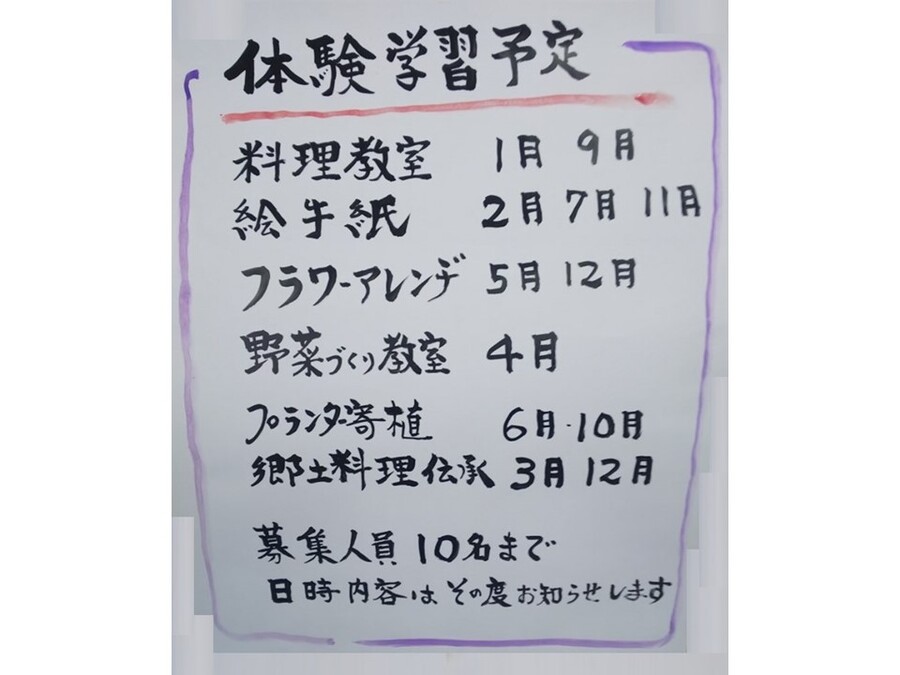 体験学習予定
料理教室 1月 9月
絵手紙 2月 7月 11月
フラワーアレンヂ 5月 12月
野菜づくり教室 4月
プランター寄植 6月・10月
郷土料理伝承 3月 12月
募集人員 10名まで
日時内容はその度お知らせします